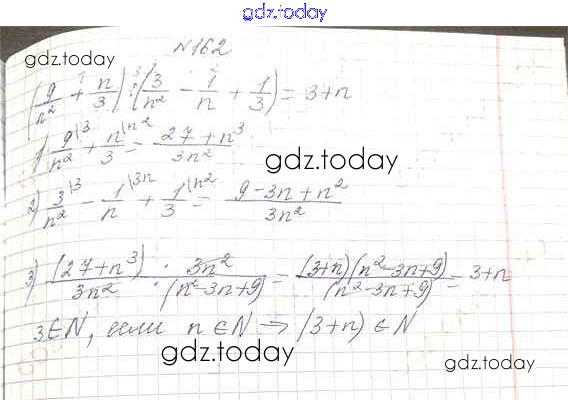 gdz.today
gdz.today
N162
(9/n² + n/3) : (3/n² - 1/n + 1/3) = 3+n
1) 9/n² |3 + n/3 |n² = 27+n³/3n²
gdz.today
2) 3/n² |3 - 1/n |3n + 1/3 |n² = 9-3n+n²/3n²
3) (27+n³)/3n² · 3n²/(n²-3n+9) = (3+n)(n²-3n+9)/(n²-3n+9) = 3+n
3∈N, если n∈N → (3+n)∈N
gdz.today
gdz.today